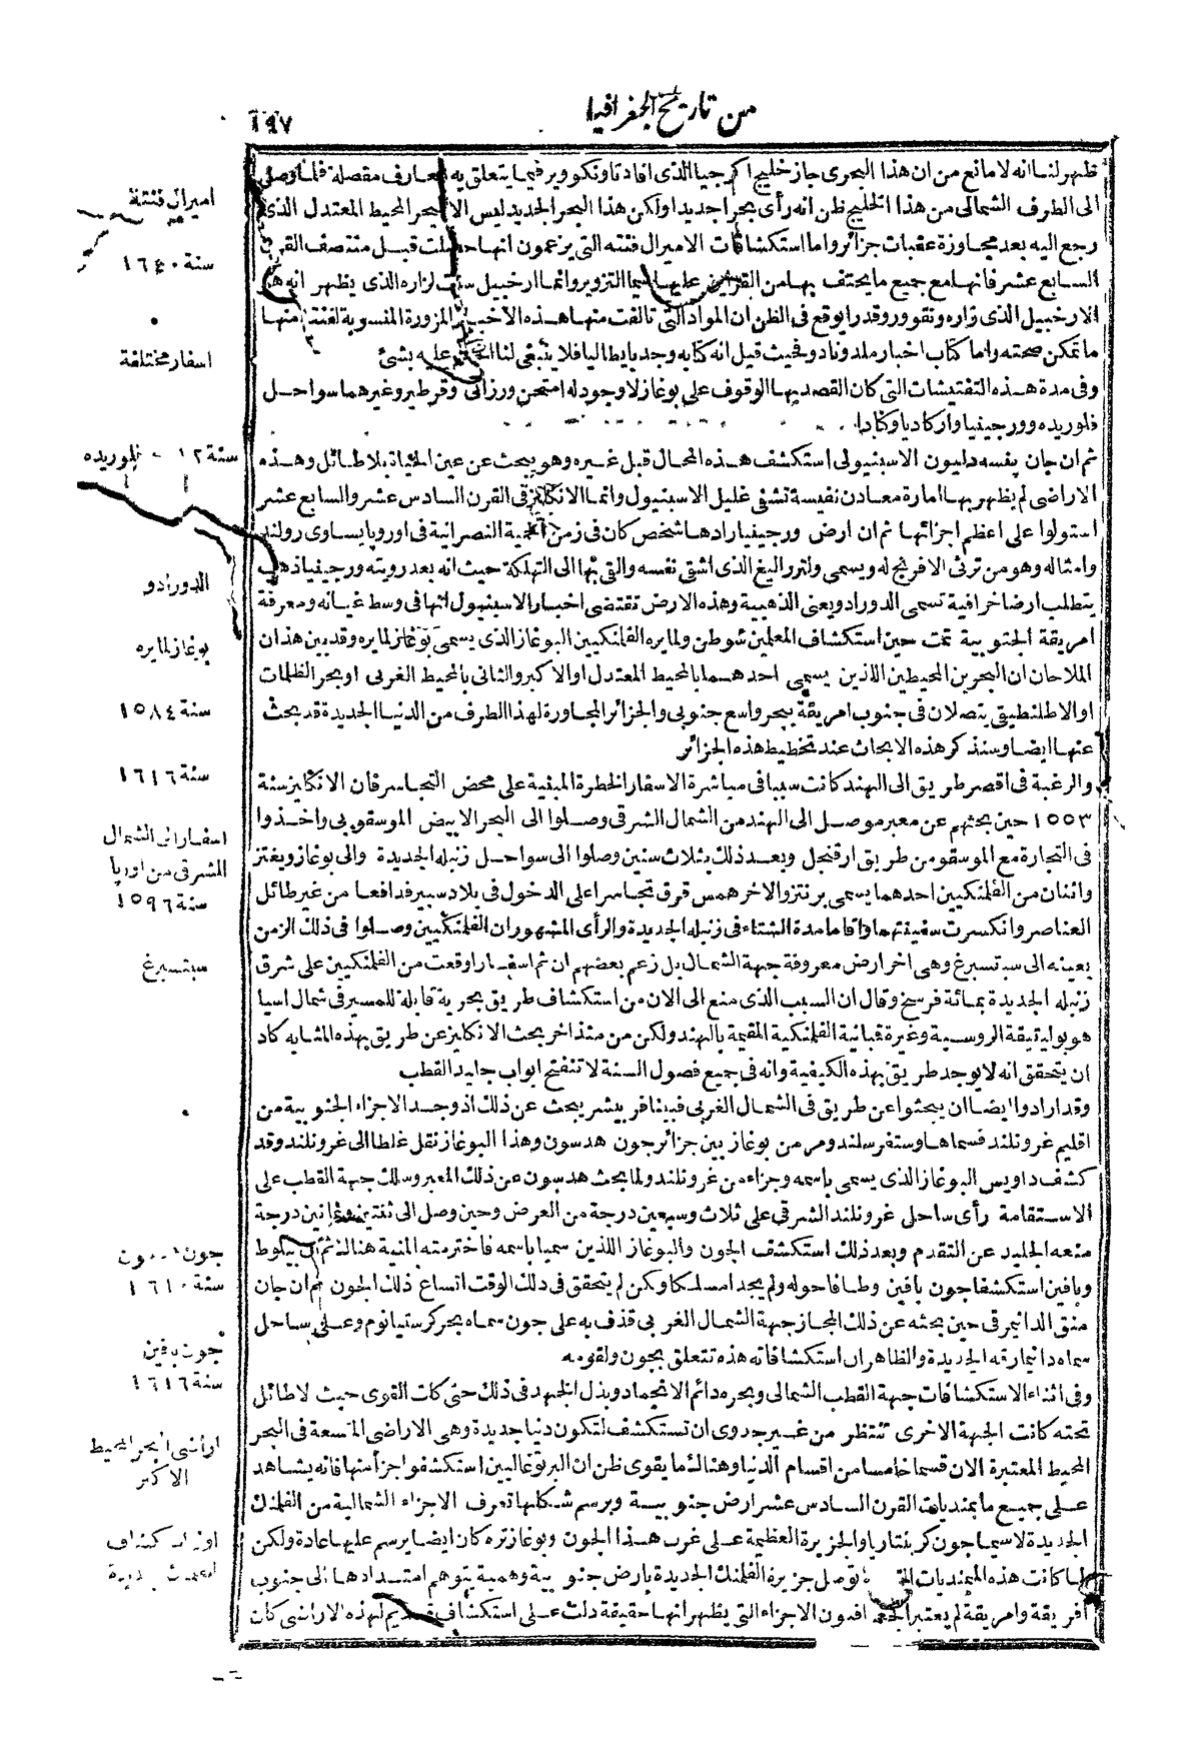 من تاريخ الجغرافيا
١٩٧
ظهر لنا انه لا مانع من ان هذا البحرى جاز خليج اكرجيا الذى افادتا ونكووير فيما يتعلق به معارف مفصلة فلما وصل
الى الطرف الشمالى من هذا الخليج ظن انه رأى بحرا جديدا ولكن هذا البحر الجديد ليس الا البحر المحيط المعتدل الذى
رجع اليه بعد مجاوزة عقبات جزائر واما استكشافات الاميرال فنته التى يزعمون انها حصلت قبل منتصف القرن
السابع عشر فانها مع جميع ما يحتف بها من القراين عليها سيما التزوير وانما ارخبيل سنت لزاره الذى يظهر انه هو
الارخبيل الذى زاره ونقوور وقد رابو قع فى الظن ان المواد التى تالفت منها هذه الاخبار المزورة المنسوبة لفنتة منها
ما تمكن صحته واما كتاب اخبار ملدونادو فحيث قيل انه كتابه وجد بايطاليا فلا ينبغى لنا الحكم عليه بشئ
وفى مدة هذه التفتيشات التى كان القصد بها الوقوف على بوغاز لا وجود له امتحن ورزانى وقرطير وغيرهما سواحل
فلوريده وورجينيا واركاديا وكنادا
ثم ان جان پنسه دليون الاسبنيولى استكشف هذه المحال قبل غيره وهو يبحث عن عين الحياة بلا طائل وهذه
الاراضى لم يظهر بها امارة معادن نفيسة تشفى غليل الاسبنيول وانما الانكليز فى القرن السادس عشر والسابع عشر
استولوا على اعظم اجزائها ثم ان ارض ورجينيا رادها شخص كان فى زمن الحمية النصرانية فى اوروپا يساوى رولند
وامثاله وهو من ترثى الافرنج له ويسمى ولترر اليغ الذى اشقى نفسه والقى بها الى التهلكة حيث انه بعد رويته ورجينيا ذهب
يتطلب ارضا خرافية تسمى الدورادو يعنى الذهبية وهذه الارض تقتضى اخبار الاسبنيول انها فى وسط غيانه ومعرفة
امريقة الجنوبية تمت حين استكشاف المعلمين شوطن ولمايره الفلمنكيين البوغاز الذى يسمى بوغاز لمايره وقد بين هذان
الملاحان ان البحرين المحيطين اللذين يسمى احدهما بالمحيط المعتدل او الاكبر والثانى بالمحيط الغربى او بحر الظلمات
او الاطلنطيقى يتصلان فى جنوب امريقة ببحر واسع جنوبى والجزائر المجاورة لهذا الطرف من الدنيا الجديدة قد بحث
عنها ايضا وسنذكر هذه الابحاث عند تخطيط هذه الجزائر
والرغبة فى اقصر طريق الى الهند كانت سببا فى مباشرة الاسفار الخطرة المبنية على محض التجاسر فان الانكليز سنة
١٥٥٣ حين بحثهم عن معبر موصل الى الهند من الشمال الشرقى وصلوا الى البحر الابيض الموسقوبى واخذوا
فى التجارة مع الموسقو من طريق ارقنجل وبعد ذلك بثلاث سنين وصلوا الى سواحل زنبله الجديدة والى بوغاز ويغتز
واثنان من الفلمنكيين احدهما يسمى برنتز والاخر همس قرق تجاسرا على الدخول فى بلاد سبير فدافعا من غير طائل
العناصر وانكسرت سفينتهما واقاما مدة الشتاء فى زنبله الجديدة والرأى المشهور ان الفلمنكيين وصلوا فى ذلك الزمن
بعينه الى سبتسبرغ وهى اخر ارض معروفة جهة الشمال بل زعم بعضهم ان ثم اسفارا وقعت من الفلمنكيين على شرق
زنبله الجديدة بمائة فرسخ وقال ان السبب الذى منع الى الان من استكشاف طريق بحرية قابلة للمسير فى شمال اسيا
هو بوليتيقة الروسية وغيرة قمبانية الفلمنكية المقيمة بالهند ولكن من منذ اخر بحث الانكليز عن طريق بهذه المثابه كاد
ان يتحقق انه لا يوجد طريق بهذه الكيفية وانه فى جميع فصول السنة لا تنفتح ابواب جليد القطب
وقد ارادوا ايضا ان يبحثوا عن طريق فى الشمال الغربى فبينا فربيشر يبحث عن ذلك اذ وجد الاجزاء الجنوبية من
اقليم غرونلند فسماها وستفرسلند ومر من بوغاز بين جزائر جون هدسون وهذا البوغاز نقل غلطا الى غرونلند وقد
كشف داويس البوغاز الذى يسمى باسمه وجزاء من غرونلند ولما بحث هدسون عن ذلك المعبر وسلك جهة القطب على
الاستقامة رأى ساحل غرونلند الشرقى على ثلاث وسبعين درجة من العرض وحين وصل الى ثنتين وثمانين درجة
منعه الجليد عن التقدم وبعد ذلك استكشف الجون والبوغاز اللذين سميا باسمه فاخترمته المنية هنالك ثم ان بيلوط
وبافين استكشفا جون بافين وطافا حوله ولم يجدا مسلكا ولكن لم يتحقق فى ذلك الوقت اتساع ذلك الجون ثم ان جان
منق الدانيمرقى حين بحثه عن ذلك المجاز جهة الشمال الغربى قذف به على جون سماه بحر كرستيانوم وعلى ساحل
سماه دانيمارقه الجديدة والظاهر ان استكشافاته هذه تتعلق بجون ولقومه
وفى اثناء الاستكشافات جهة القطب الشمالى وبحره دائم الانجماد وبذل الجهد فى ذلك حتى كلت القوى حيث لا طائل
تحته كانت الجهة الاخرى تنتظر من غير جدوى ان تستكشف لتكون دنيا جديدة وهى الاراضى المتسعة فى البحر
المحيط المعتبرة الان قسما خامسا من اقسام الدنيا وهناك ما يقوى ظن ان البرتوغاليين استكشفوا جزأ منها فانه يشاهد
على جميع مابمنديات القرن السادس عشر ارض جنوبية وبرسم شكلها تعرف الاجزاء الشمالية من الفلمنك
الجديدة لاسيما جون كربنتاريا والجزيرة العظيمة على غرب هذا الجون وبوغاز تره كان ايضا يرسم عليها عادة ولكن
لما كانت هذه المبمنديات توصل جزيرة الفلمنك الجديدة بارض جنوبية وهمية يتوهم امتدادها الى جنوب
افريقة وامريقة لم يعتبر الجغرافيون الاجزاء التى يظهر انها حقيقة دلت على استكشاف قديم لهذه الاراضى كان
اميرال فنتنة
سنة ١٦٤٠
اسفار مختلفة
سنة ١٢ فلوريده
الدورادو
بوغاز لمايره
سنة ١٥٨٤
سنة ١٦١٦
اسفار الى الشمال
الشرقى من اوروپا
سنة ١٥٩٦
سبتسبرغ
جون
سنة ١٦١٠
جون بافين
سنة ١٦١٦
اراضى البحر المحيط
الاكبر